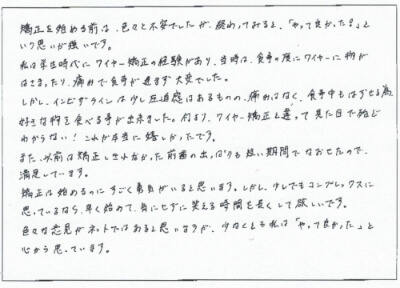 矯正を始める前は、色々と不安でしたが、終わってみると、「やって良かった!」と
いう思いが強いです。
私は学生時代にワイヤー矯正の経験があり、当時は、食事の度にワイヤーに物が
はさまったり、痛みで食事が進まず大変でした。
しかし、インビザラインは少し圧迫感はあるものの、痛みはなく、食事中もはずせる為、
好きな物を食べる事が出来ました。何より、ワイヤー矯正と違って見た目で殆ど
わからない!これが本当に嬉しかったです。
また、以前は矯正しきれなかった前歯の出っぱりも短い期間でなおせたので、
満足しています。
矯正は始めるのにすごく勇気がいると思います。しかし、少しでもコンプレックスに
思っているなら、早く始めて、気にせずに笑える時間を長くして欲しいです。
色々な意見がネットではあると思いますが、少なくとも私は「やって良かった」と
心から思っています。